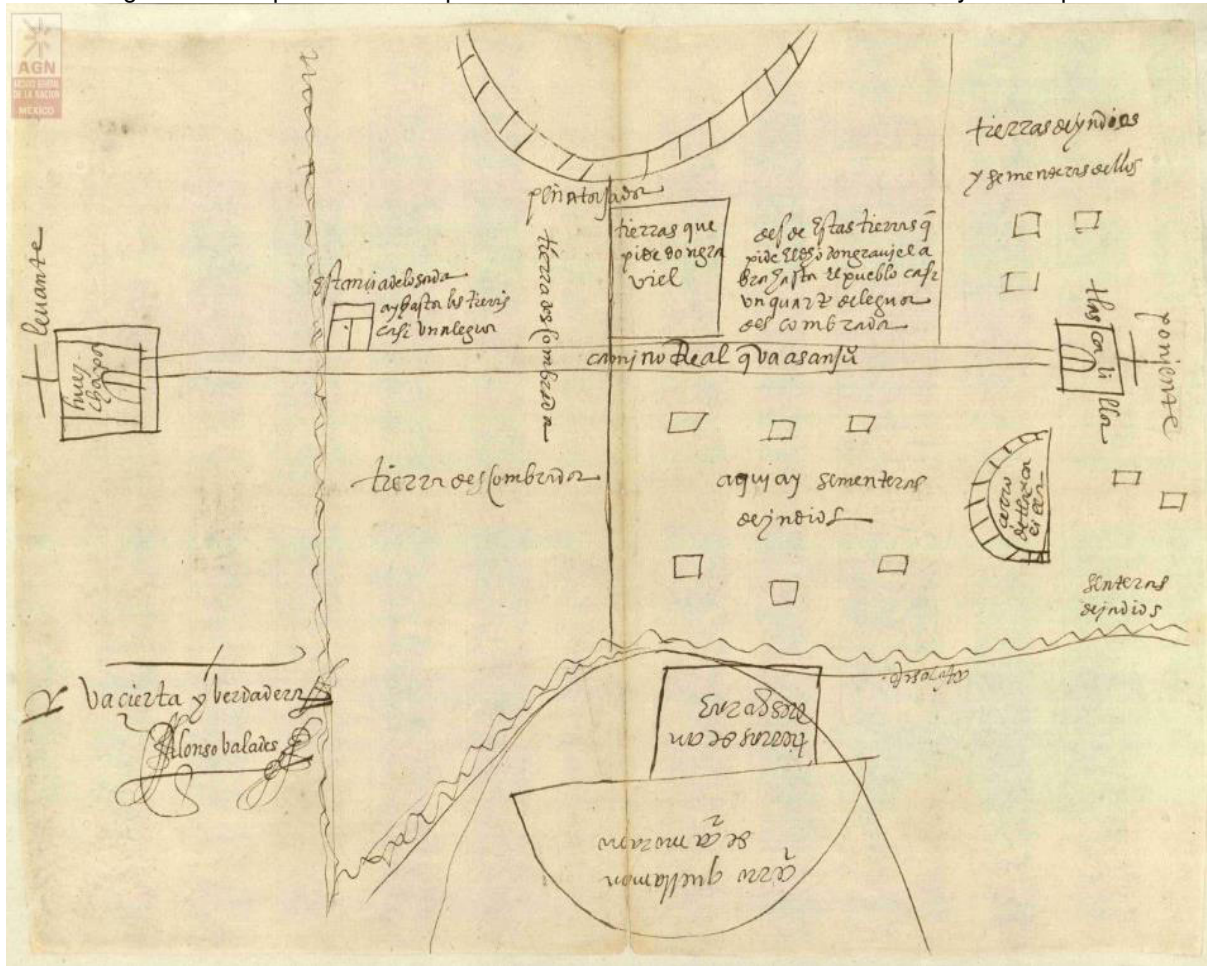 AGN
ARCHIVO GENERAL
DE LA NACION
MEXICO
tierras de yndios
y sementeras dellos
peña tajada
tierras que
pide don gra
viel
des de estas tierras q̃
pide el dho don graviel a
bra hasta el pueblo casi
un quarto de legua
des combrada
tierra des combrada
estancia de losada
ay hasta las tierras
casi una legua
levante
huey
chapa
camino Real q va a san juº
tlas ca li lla
poniente
tierra des combrada
aqui ay sementeras
de yndios
cerro
senteras
de yndios
va cierta y berdadera
Alonso balades
tierras de an
dres garª
cerro que llaman
de ça mozan